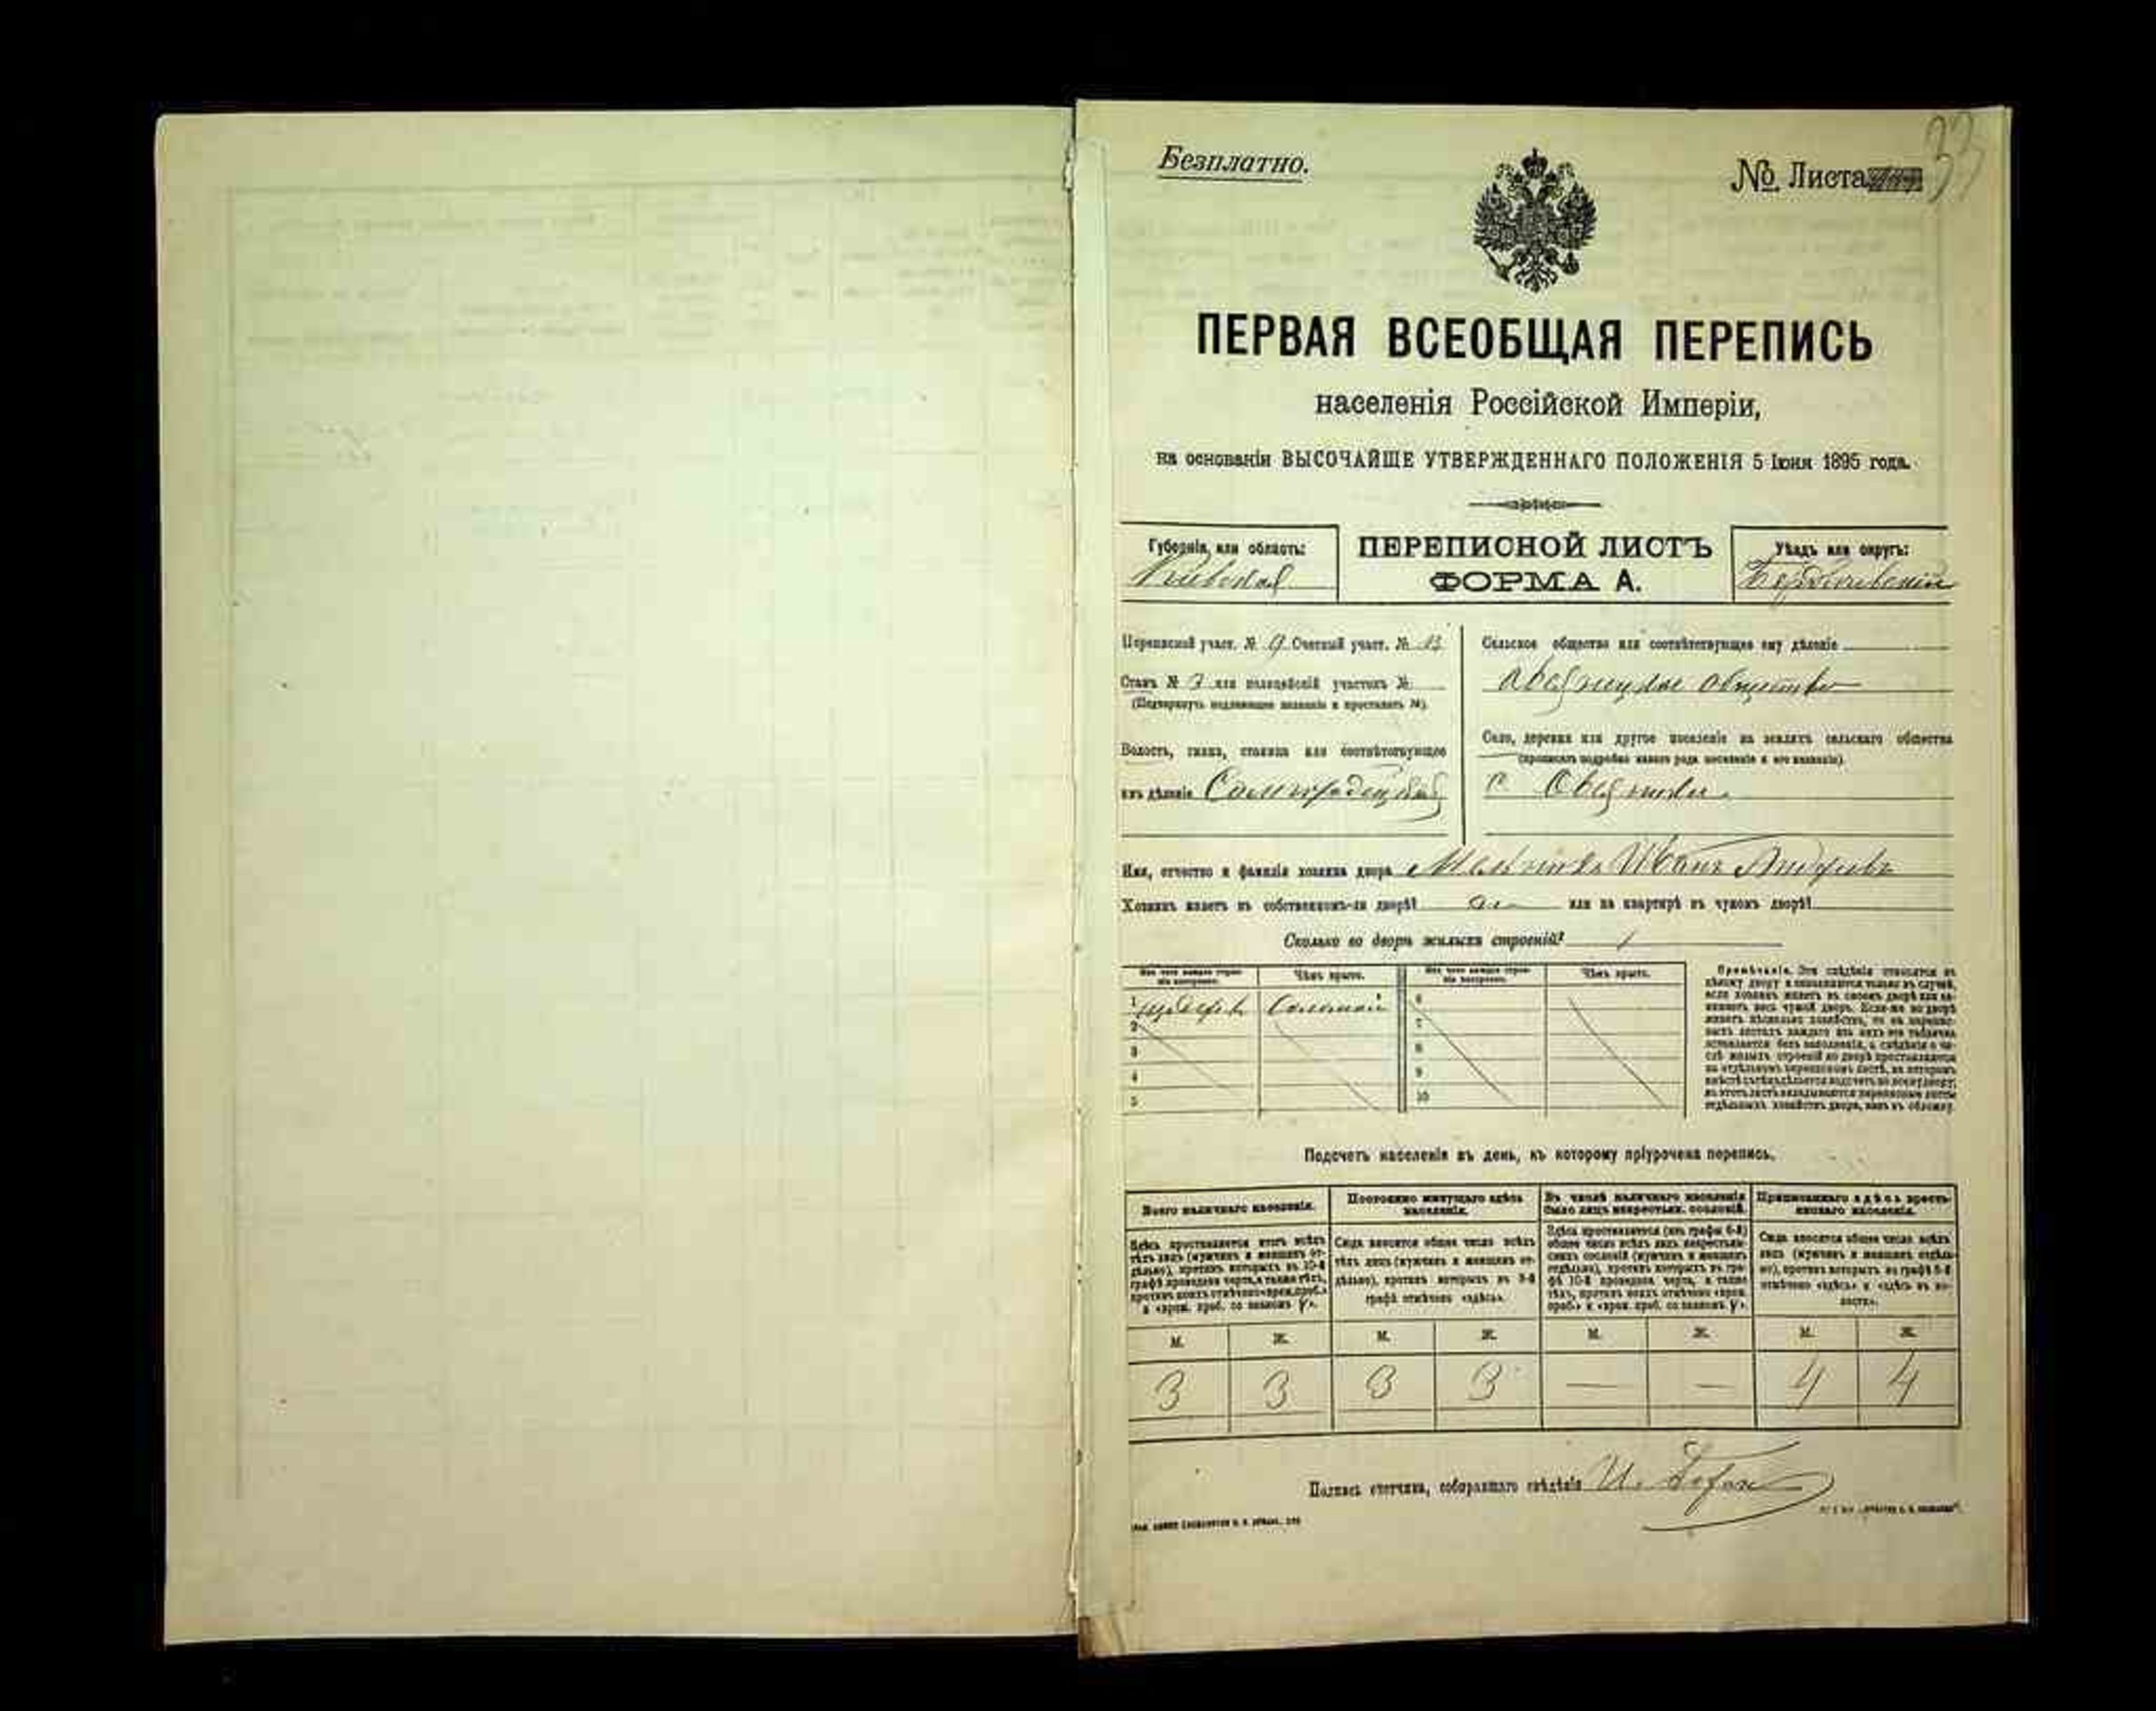 Безплатно.
№ Листа 33
ПЕРВАЯ ВСЕОБЩАЯ ПЕРЕПИСЬ
населенія Россійской Имперіи,
на основаніи ВЫСОЧАЙШЕ УТВЕРЖДЕННАГО ПОЛОЖЕНІЯ 5 Іюня 1895 года.
Губернія, или область:
Кіевская
ПЕРЕПИСНОЙ ЛИСТЪ
ФОРМА А.
Уѣздъ или округъ:
Бердичевскій
Переписной участ. № 9 Счетный участ. № 13
Станъ № 3 или полицейскій участокъ №
(Подчеркнуть подлежащее названіе и проставить №).
Волость, гмина, станица или соотвѣтствующее
имъ дѣленіе
Сельское общество или соотвѣтствующее ему дѣленіе
общество
Село, деревня или другое поселеніе на земляхъ сельскаго общества
(прописать подробно какого рода поселеніе и его названіе).
с.
Имя, отчество и фамилія хозяина двора Мельникъ Иванъ
Хозяинъ живетъ въ собственномъ-ли дворѣ? или на квартирѣ въ чужомъ дворѣ?
Сколько во дворѣ жилыхъ строеній? 1
Изъ чего каждое строеніе построено.
Чѣмъ крыто.
Изъ чего каждое строеніе построено.
Чѣмъ крыто.
1 Соломой 6
2 7
3 8
4 9
5 10
Примѣчаніе. Эти свѣдѣнія относятся къ
цѣлому двору и заполняются только въ случаѣ,
если хозяинъ живетъ въ своемъ дворѣ или за-
нимаетъ весь чужой дворъ. Если-же во дворѣ
живетъ нѣсколько хозяйствъ, то на перепис-
ныхъ листахъ каждаго изъ нихъ эта табличка
оставляется безъ заполненія, а свѣдѣнія о чи-
слѣ жилыхъ строеній во дворѣ проставляются
на отдѣльномъ переписномъ листѣ, на которомъ
отдѣльныхъ хозяйствъ двора, какъ въ обложку.
Подсчетъ населенія въ день, къ которому пріурочена перепись.
Всего наличнаго населенія.
Постоянно живущаго здѣсь
населенія.
Въ числѣ наличнаго населенія
было лицъ некрестьян. сословій.
Приписаннаго здѣсь кресть-
янскаго населенія.
Здѣсь проставляется итогъ всѣхъ
тѣхъ лицъ (мужчинъ и женщинъ от-
дѣльно), противъ которыхъ въ 10-й
графѣ проведена черта, а также тѣхъ,
противъ коихъ отмѣчено «врем. проб.»
и «врем. проб. со знакомъ V».
Сюда вносится общее число всѣхъ
тѣхъ лицъ (мужчинъ и женщинъ от-
дѣльно), противъ которыхъ въ 9-й
графѣ отмѣчено «здѣсь».
Здѣсь проставляется (изъ графы 6-й)
общее число всѣхъ лицъ некрестьян-
скихъ сословій (мужчинъ и женщинъ
отдѣльно), противъ которыхъ въ гра-
фѣ 10-й проведена черта, а также
тѣхъ, противъ коихъ отмѣчено «врем.
проб.» и «врем. проб. со знакомъ V».
Сюда вносится общее число всѣхъ
лицъ (мужчинъ и женщинъ отдѣль-
но), противъ которыхъ въ графѣ 8-й
отмѣчено «здѣсь» и «здѣсь въ во-
лости».
М. Ж. М. Ж. М. Ж. М. Ж.
3 3 3 3 — — 4 4
Подпись счетчика, собиравшаго свѣдѣнія